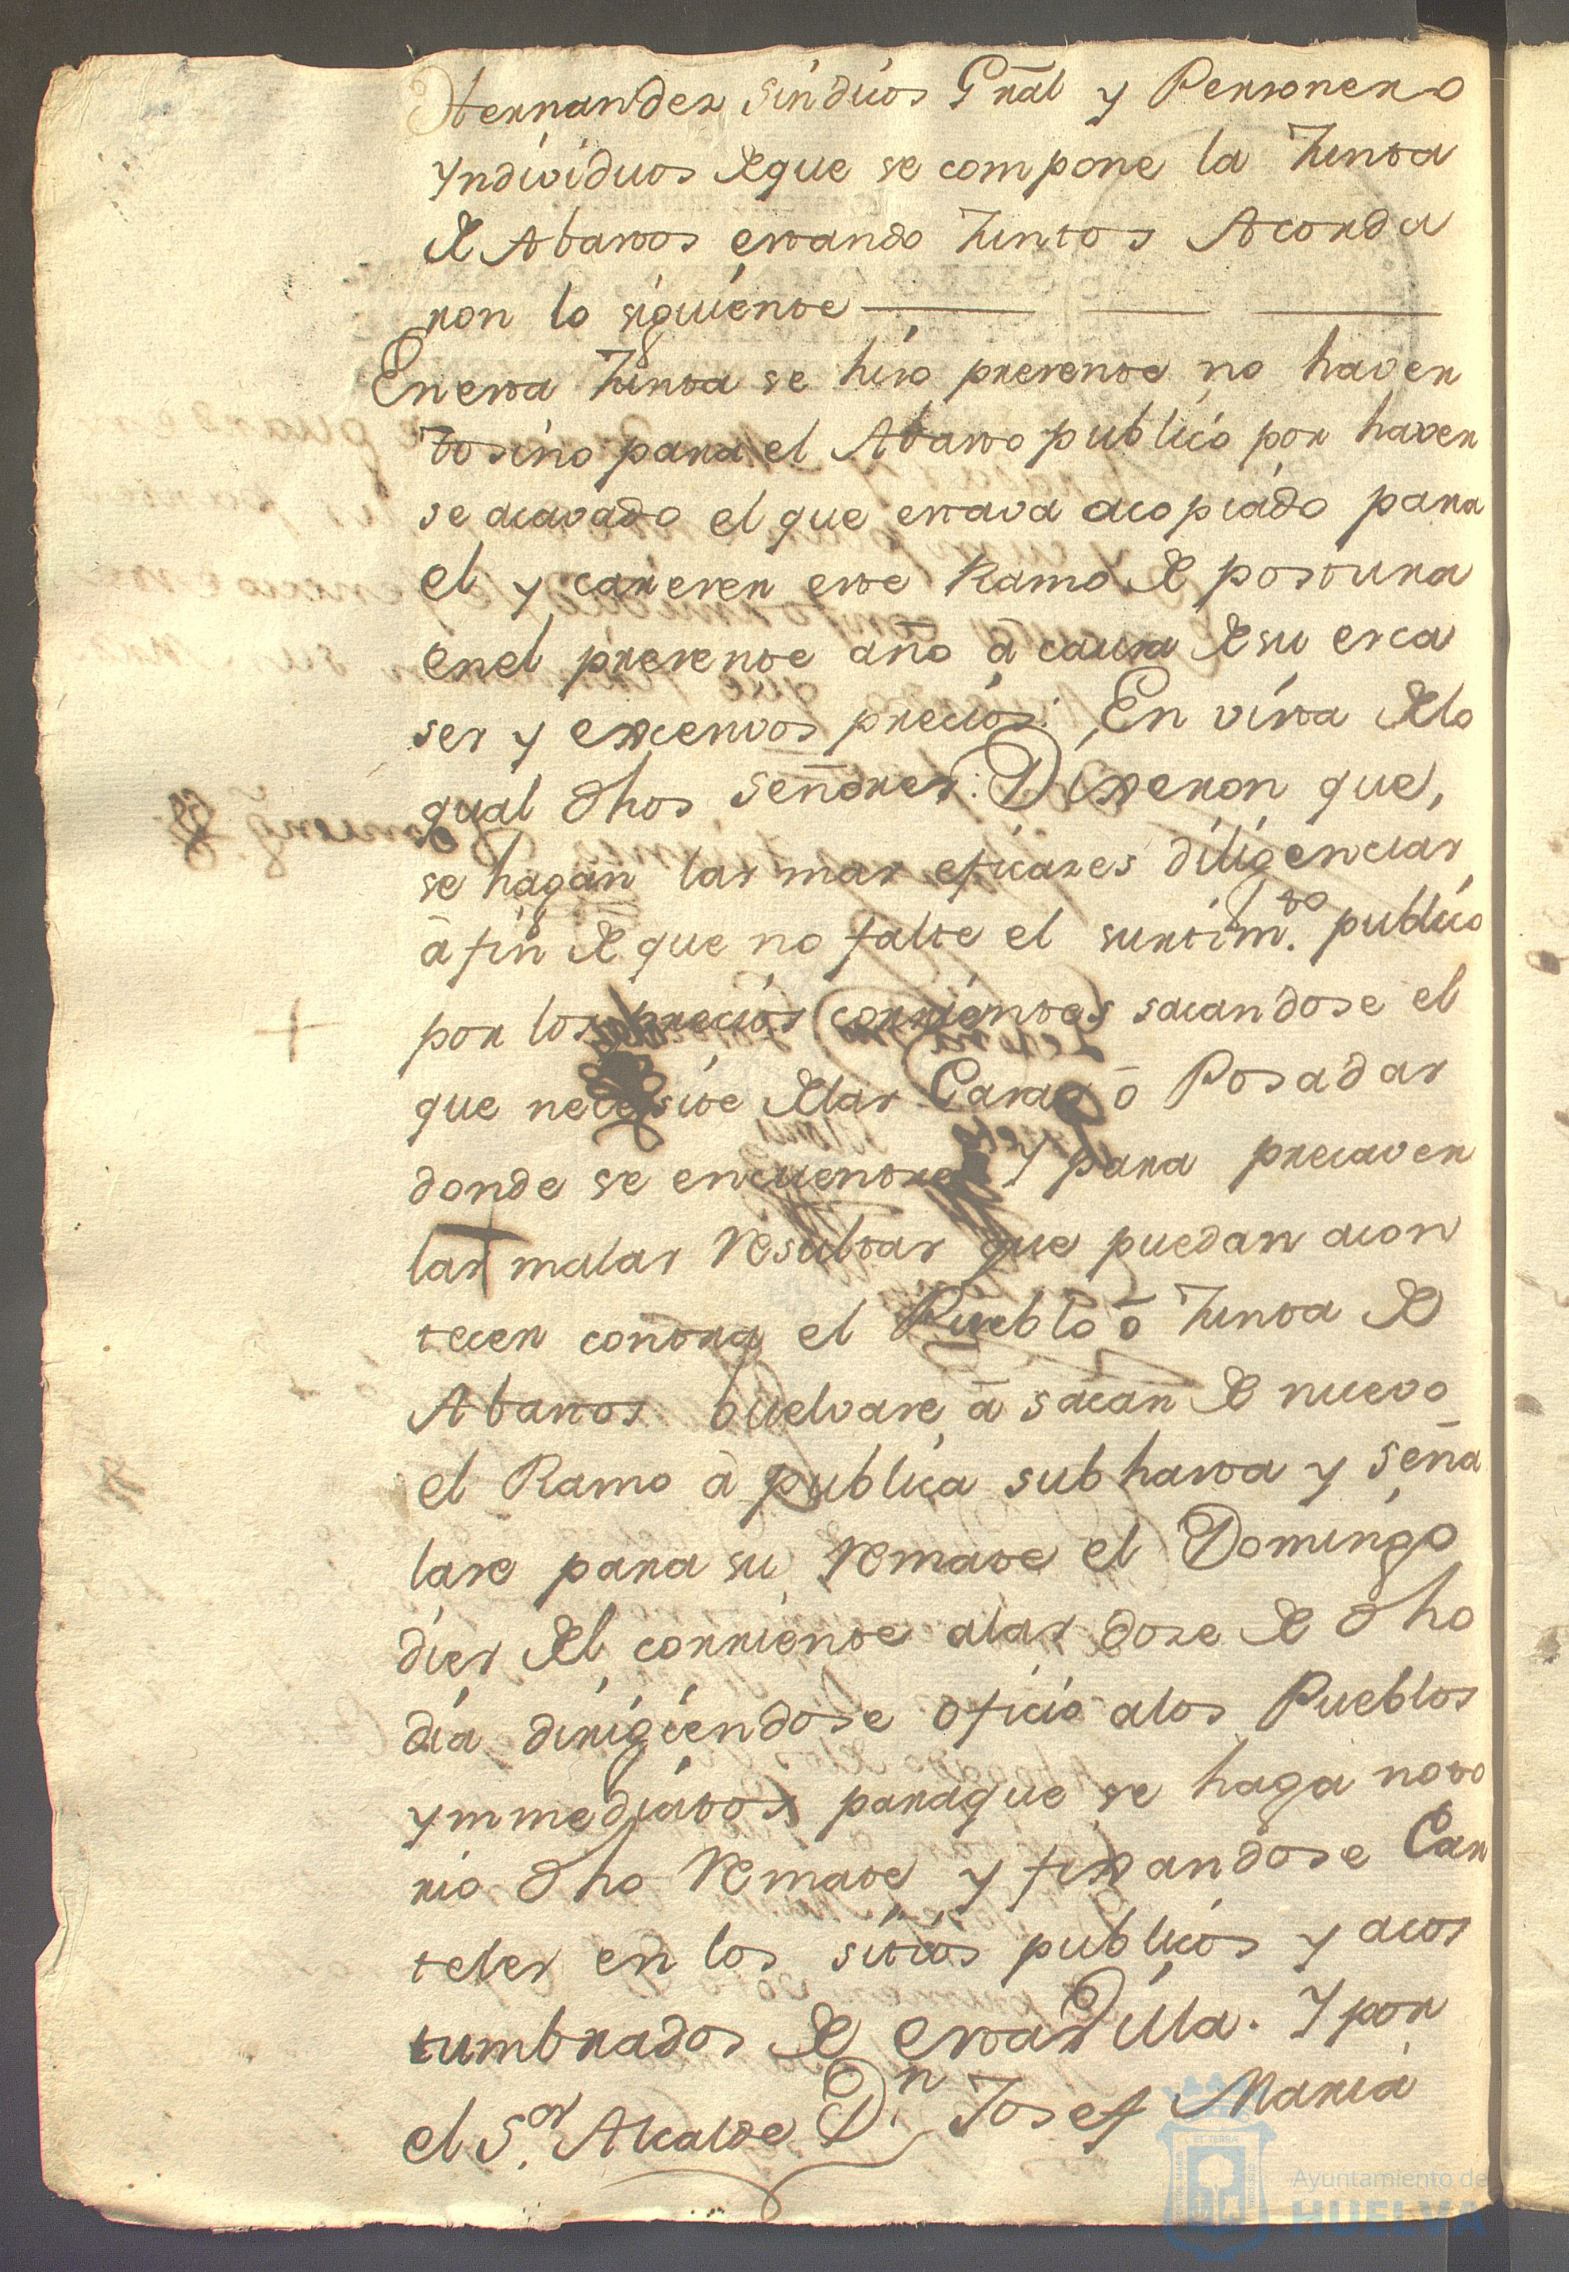 Hernandez Sindicos Gral y Personero
yndividuos de que se compone la Junta
de Abastos estando Juntos Acorda
ron lo siguiente
En esta Junta se hizo presente no haver
tosino para el Abasto publico por haver
se acavado el que estava acopiado para
el y careser este Ramo de postura
en el presente año á causa de su esca
ses y excesivos precios: En vista delo
qual dhos Señores: Dixeron que,
se hagan las mas eficazes diligencias
á fin de que no falte el surtimto. publico
por los precios corrientes sacandose el
que necesite delas Casas ó Posadas
donde se encuentre Y para precaver
las malas resultas que puedan acon
tecer contra el Pueblo ó Junta de
Abastos buelvase á sacar de nuevo
el Ramo á publica subhasta y seña
lase para su remate el Domingo
dies del corriente alas doze de dho
dia dirigiendose oficio alos Pueblos
ymmediatos paraque se haga noto
rio dho remate y fixandose Car
teles en los sitios publicos y acos
tumbrados de esta Villa. Y por
el Sor. Alcalde Dn. Josef Maria
Ayuntamiento de
HUELVA